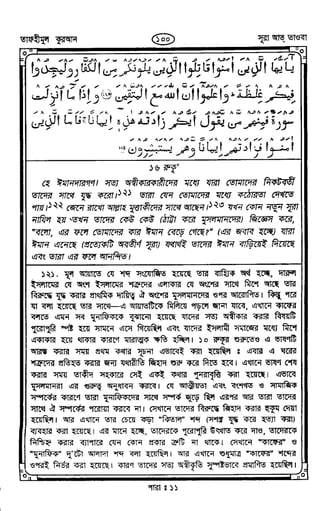 তাফহীমুল কুরআন
১০০
সূরা আত্ তাওবা
يٰٓاَيُّهَا الَّذِيْنَ اٰمَنُوْا قَاتِلُوا الَّذِيْنَ يَلُوْنَكُمْ مِّنَ الْكُفَّارِ وَلْيَجِدُوْا
فِيْكُمْ غِلْظَةً ۚ وَاعْلَمُوْٓا اَنَّ اللّٰهَ مَعَ الْمُتَّقِيْنَ ﴿۱۲۳﴾ وَاِذَا مَآ اُنْزِلَتْ
سُوْرَةٌ فَمِنْهُمْ مَّنْ يَّقُوْلُ اَيُّكُمْ زَادَتْهُ هٰذِهٖٓ اِيْمَانًا ۚ فَاَمَّا الَّذِيْنَ
اٰمَنُوْا فَزَادَتْهُمْ اِيْمَانًا وَّهُمْ يَسْتَبْشِرُوْنَ ﴿۱۲۴﴾
১৬ রুকূ'
হে ঈমানদারগণ! সত্য অস্বীকারকারীদের মধ্যে যারা তোমাদের নিকটবর্তী
তাদের সাথে যুদ্ধ করো।১২১ তারা যেন তোমাদের মধ্যে কঠোরতা দেখতে
পায়।১২২ জেনে রাখো আল্লাহ মুত্তাকীদের সাথে আছেন।১২৩ যখন কোন নতুন সূরা
নাযিল হয় তখন তাদের কেউ কেউ (ঠাট্টা করে মুসলমানদের) জিজ্ঞেস করে,
"বলো, এর ফলে তোমাদের কার ঈমান বেড়ে গেছে?" (এর জবাব হচ্ছে) যারা
ঈমান এনেছে (প্রত্যেকটি অবতীর্ণ সূরা) যথার্থই তাদের ঈমান বাড়িয়েই দিয়েছে
এবং তারা এর ফলে আনন্দিত।
১২১. মূল আয়াতে যে শব্দ সংযোজিত হয়েছে তার বাহ্যিক অর্থ হচ্ছে, দারুল
ইসলামের যে অংশ ইসলামের শত্রুদের এলাকার যে অংশের সাথে মিশে আছে তার
বিরুদ্ধে যুদ্ধ করার প্রাথমিক দায়িত্ব ঐ অংশের মুসলমানদের ওপর আরোপিত। কিন্তু পরে
যা বলা হয়েছে তার সাথে—এ আয়াতটিকে মিলিয়ে পড়লে জানা যাবে, এখানে কাফের
বলতে এমন সব মুনাফিককে বুঝানো হয়েছে যাদের সত্য অস্বীকার করার বিষয়টি
পুরোপুরি স্পষ্ট হয়ে সামনে এসে গিয়েছিল এবং যাদের ইসলামী সমাজের মধ্যে মিশে
একাকার হয়ে থাকার কারণে মারাত্মক ক্ষতি হচ্ছিল। ১০ রুকূর শুরুতেও এ ভাষণটি
আরম্ভ করার সময় প্রথম কথার সূচনা এভাবেই করা হয়েছিল : এবার এ ঘরের
শত্রুদের প্রতিহত করার জন্য যথারীতি জিহাদ শুরু করে দিতে হবে। এখানে ভাষণ শেষ
করার সময় তাকীদ সহকারে সেই একই কথার পুনরাবৃত্তি করা হয়েছে। এভাবে
মুসলমানরা এর গুরুত্ব অনুধাবন করবে। যে আত্মীয়তা এবং বংশগত ও সামাজিক
সম্পর্কের কারণে তারা মুনাফিকদের সাথে সম্পর্ক জুড়ে ছিল এরপর আর তারা তাদের
সাথে ঐ সম্পর্কের পরোয়া করবে না। সেখানে তাদের বিরুদ্ধে জিহাদ করার হুকুম দেয়া
হয়েছিল। আর এখানে তার চেয়ে কড়া "কিতাল" শব্দ (সশস্ত্র যুদ্ধ করে হত্যা করা)
ব্যবহার করা হয়েছে। এর মানে হচ্ছে, তাদেরকে পুরোপুরি উৎখাত করে দাও, তাদেরকে
নিশ্চিহ্ন করার ব্যাপারে যেন কোন প্রকার ত্রুটি না থাকে। সেখানে "কাফের" ও
"মুনাফিক" দু'টো আলাদা শব্দ বলা হয়েছিল। আর এখানে শুধুমাত্র "কাফের" শব্দের
ওপরই নির্ভর করা হয়েছে। কারণ তাদের সত্য অস্বীকৃতি সুস্পষ্টভাবে প্রমাণিত হয়েছিল।
পারা : ১১